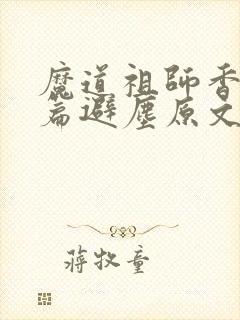 魔道祖師香
篇避塵原文
蔣牧童